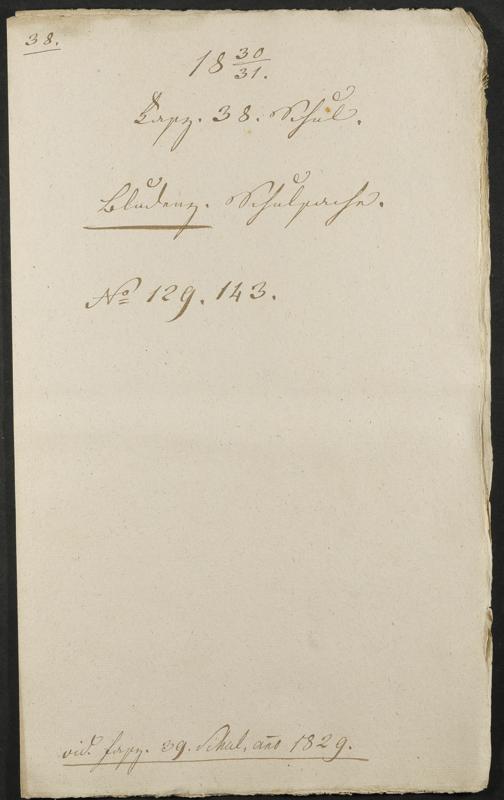 38.
18 30/31.
Fasz. 38. Schul.
Bludenz. Schulsache.
No 129. 143.
vid. fasz. 39. Schul, ano 1829.